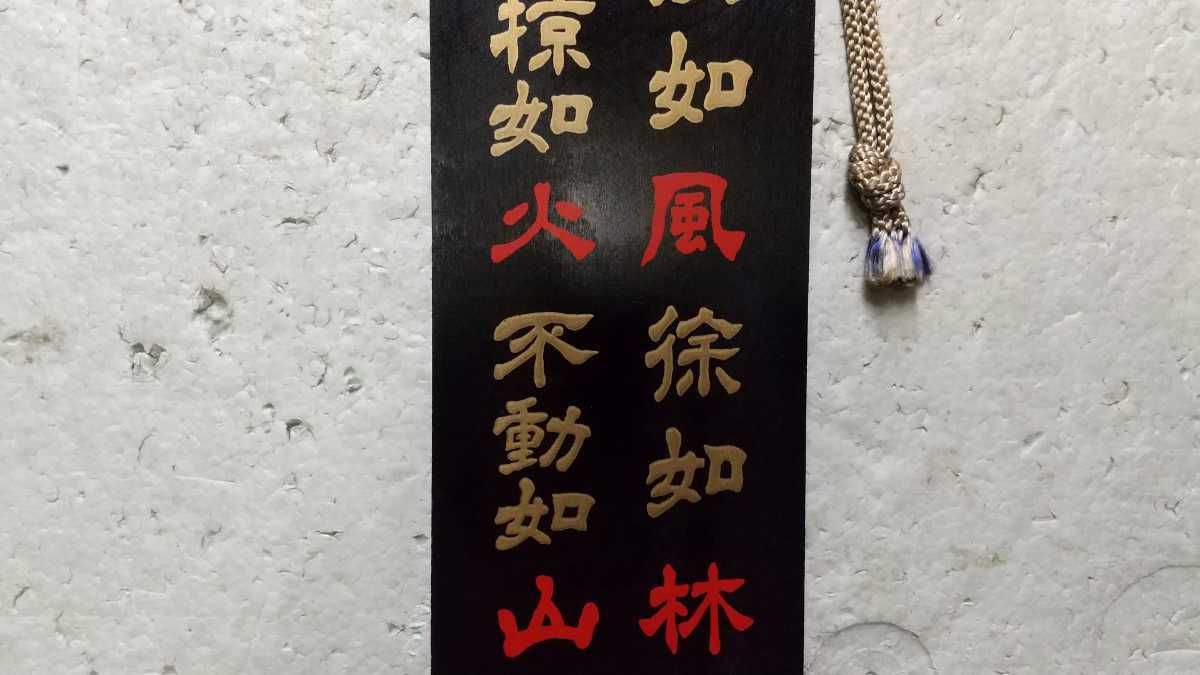 如風徐如林
掠如火不動如山